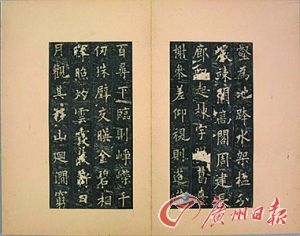 壑為池跨水架楹分
巖竦闕高閣周建
廊四起棟宇
榭參差仰視則迢
百尋下臨則崢嶸千
仞珠璧交映金碧相
暉照灼雲霞蔽虧日
月觀其移山迴澗窮
廣州日報